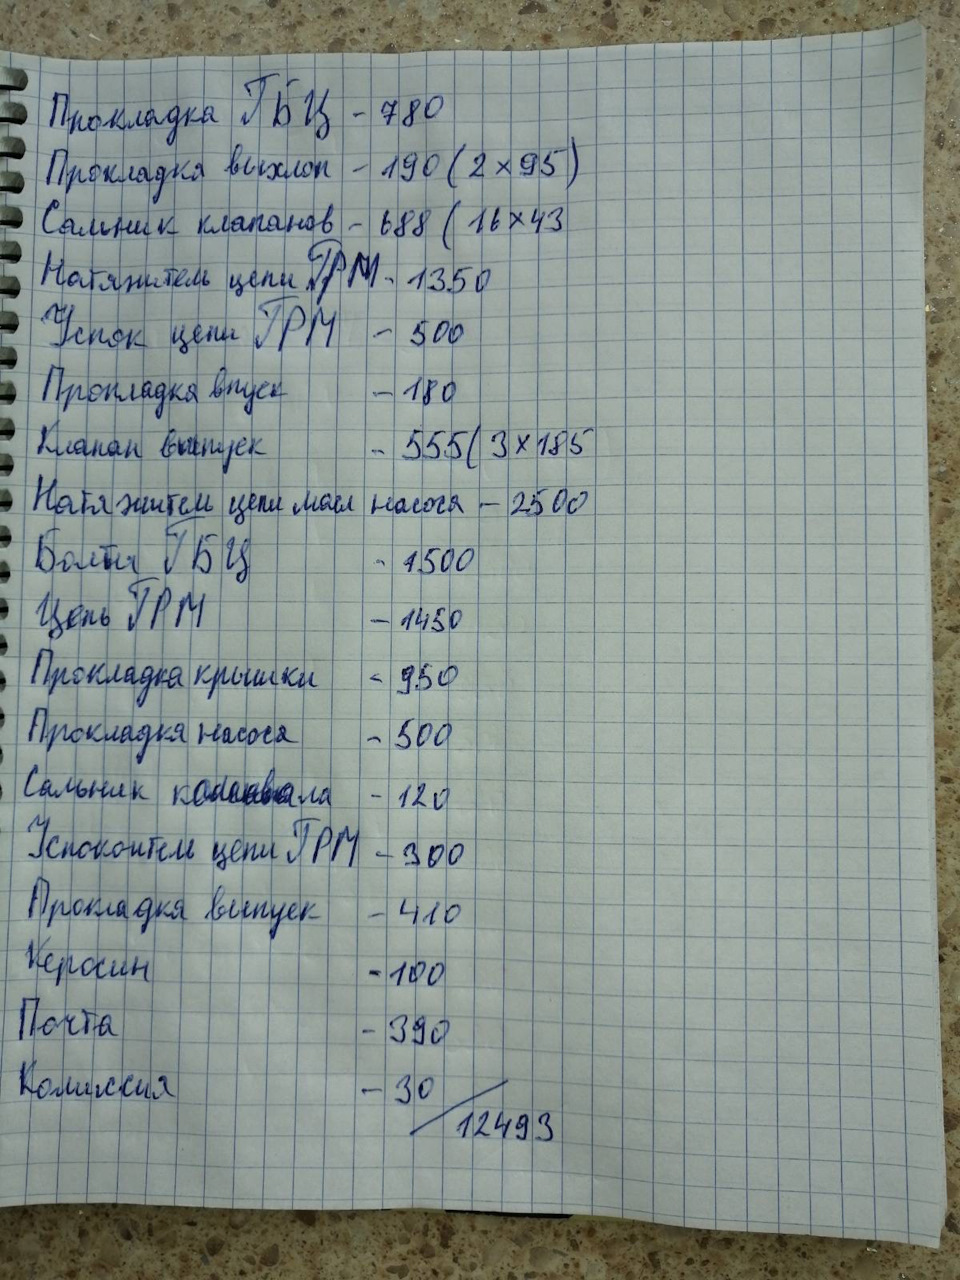 Прокладка ГБЦ - 780
Прокладка выхлоп - 190 (2×95)
Сальник клапанов - 688 (16×43
Натяжитель цепи ГРМ - 1350
Успок цепи ГРМ - 500
Прокладка впуск - 180
Клапан выпуск - 555 (3×185
Натяжитель цепи масл насоса - 2500
Болты ГБЦ - 1500
Цепь ГРМ - 1450
Прокладка крышки - 950
Прокладка насоса - 500
Сальник коленвала - 120
Успокоитель цепи ГРМ - 300
Прокладка выпуск - 410
Керосин - 100
Почта - 390
Комиссия - 30
12493